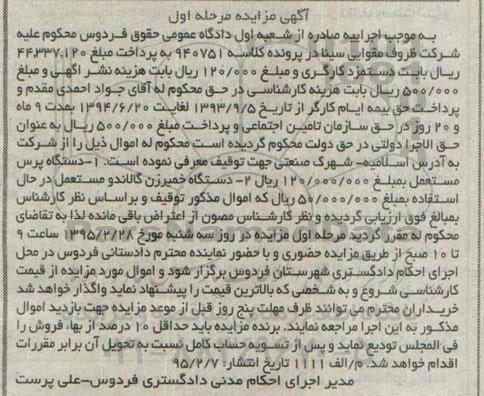 آگهی مزایده مرحله اول
به موجب اجراییه صادره از شعبه اول دادگاه عمومی حقوق فردوس محکوم علیه
شرکت ظروف مقوایی سینا در پرونده کلاسه ۹۴۰۷۵۱ به پرداخت مبلغ ۴۴۳۳۷.۱۲۰
ریال بابت دستمزد کارگری و مبلغ ۱۲۰/۰۰۰ ریال بابت هزینه نشر اگهی و مبلغ
۵۰۰/۰۰۰ ریال بابت هزینه کارشناسی در حق محکوم له آقای جواد احمدی مقدم و
پرداخت حق بیمه ایام کارگر از تاریخ ۱۳۹۳/۹/۵ لغایت ۱۳۹۴/۶/۲۰ بمدت ۹ ماه
و ۲۰ روز در حق سازمان تامین اجتماعی و پرداخت مبلغ ۵۰۰/۰۰۰ ریال به عنوان
حق الاجرا دولتی در حق دولت محکوم گردیده است محکوم له اموال ذیل را از شرکت
به آدرس اسلامیه- شهرک صنعتی جهت توقیف معرفی نموده است. ۱-دستگاه پرس
مستعمل بمبلغ ۱۲۰/۰۰۰/۰۰۰ ریال ۲- دستگاه خمیرزن گالاندو مستعمل در حال
استفاده بمبلغ ۵۰/۰۰۰/۰۰۰ ریال که اموال مذکور توقیف و براساس نظر کارشناس
بمبالغ فوق ارزیابی گردیده و نظر کارشناس مصون از اعتراض باقی مانده لذا به تقاضای
محکوم له مقرر گردید مرحله اول مزایده در روز سه شنبه مورخ ۱۳۹۵/۲/۲۸ ساعت ۹
تا ۱۰ صبح از طریق مزایده حضوری و با حضور نماینده محترم دادستانی فردوس در محل
اجرای احکام دادگستری شهرستان فردوس برگزار شود و اموال مورد مزایده از قیمت
کارشناسی شروع و به شخصی که بالاترین قیمت را پیشنهاد نماید واگذار خواهد شد
خریداران محترم می توانند ظرف مهلت پنج روز قبل از موعد مزایده جهت بازدید اموال
مذکور به این اجرا مراجعه نمایند. برنده مزایده باید حداقل ۱۰ درصد از بها، فروش را
فی المجلس تودیع نماید و پس از تسویه حساب کامل نسبت به تحویل آن برابر مقررات
اقدام خواهد شد. م/الف ۱۱۱۱ تاریخ انتشار: ۹۵/۲/۷
مدیر اجرای احکام مدنی دادگستری فردوس-علی پرست